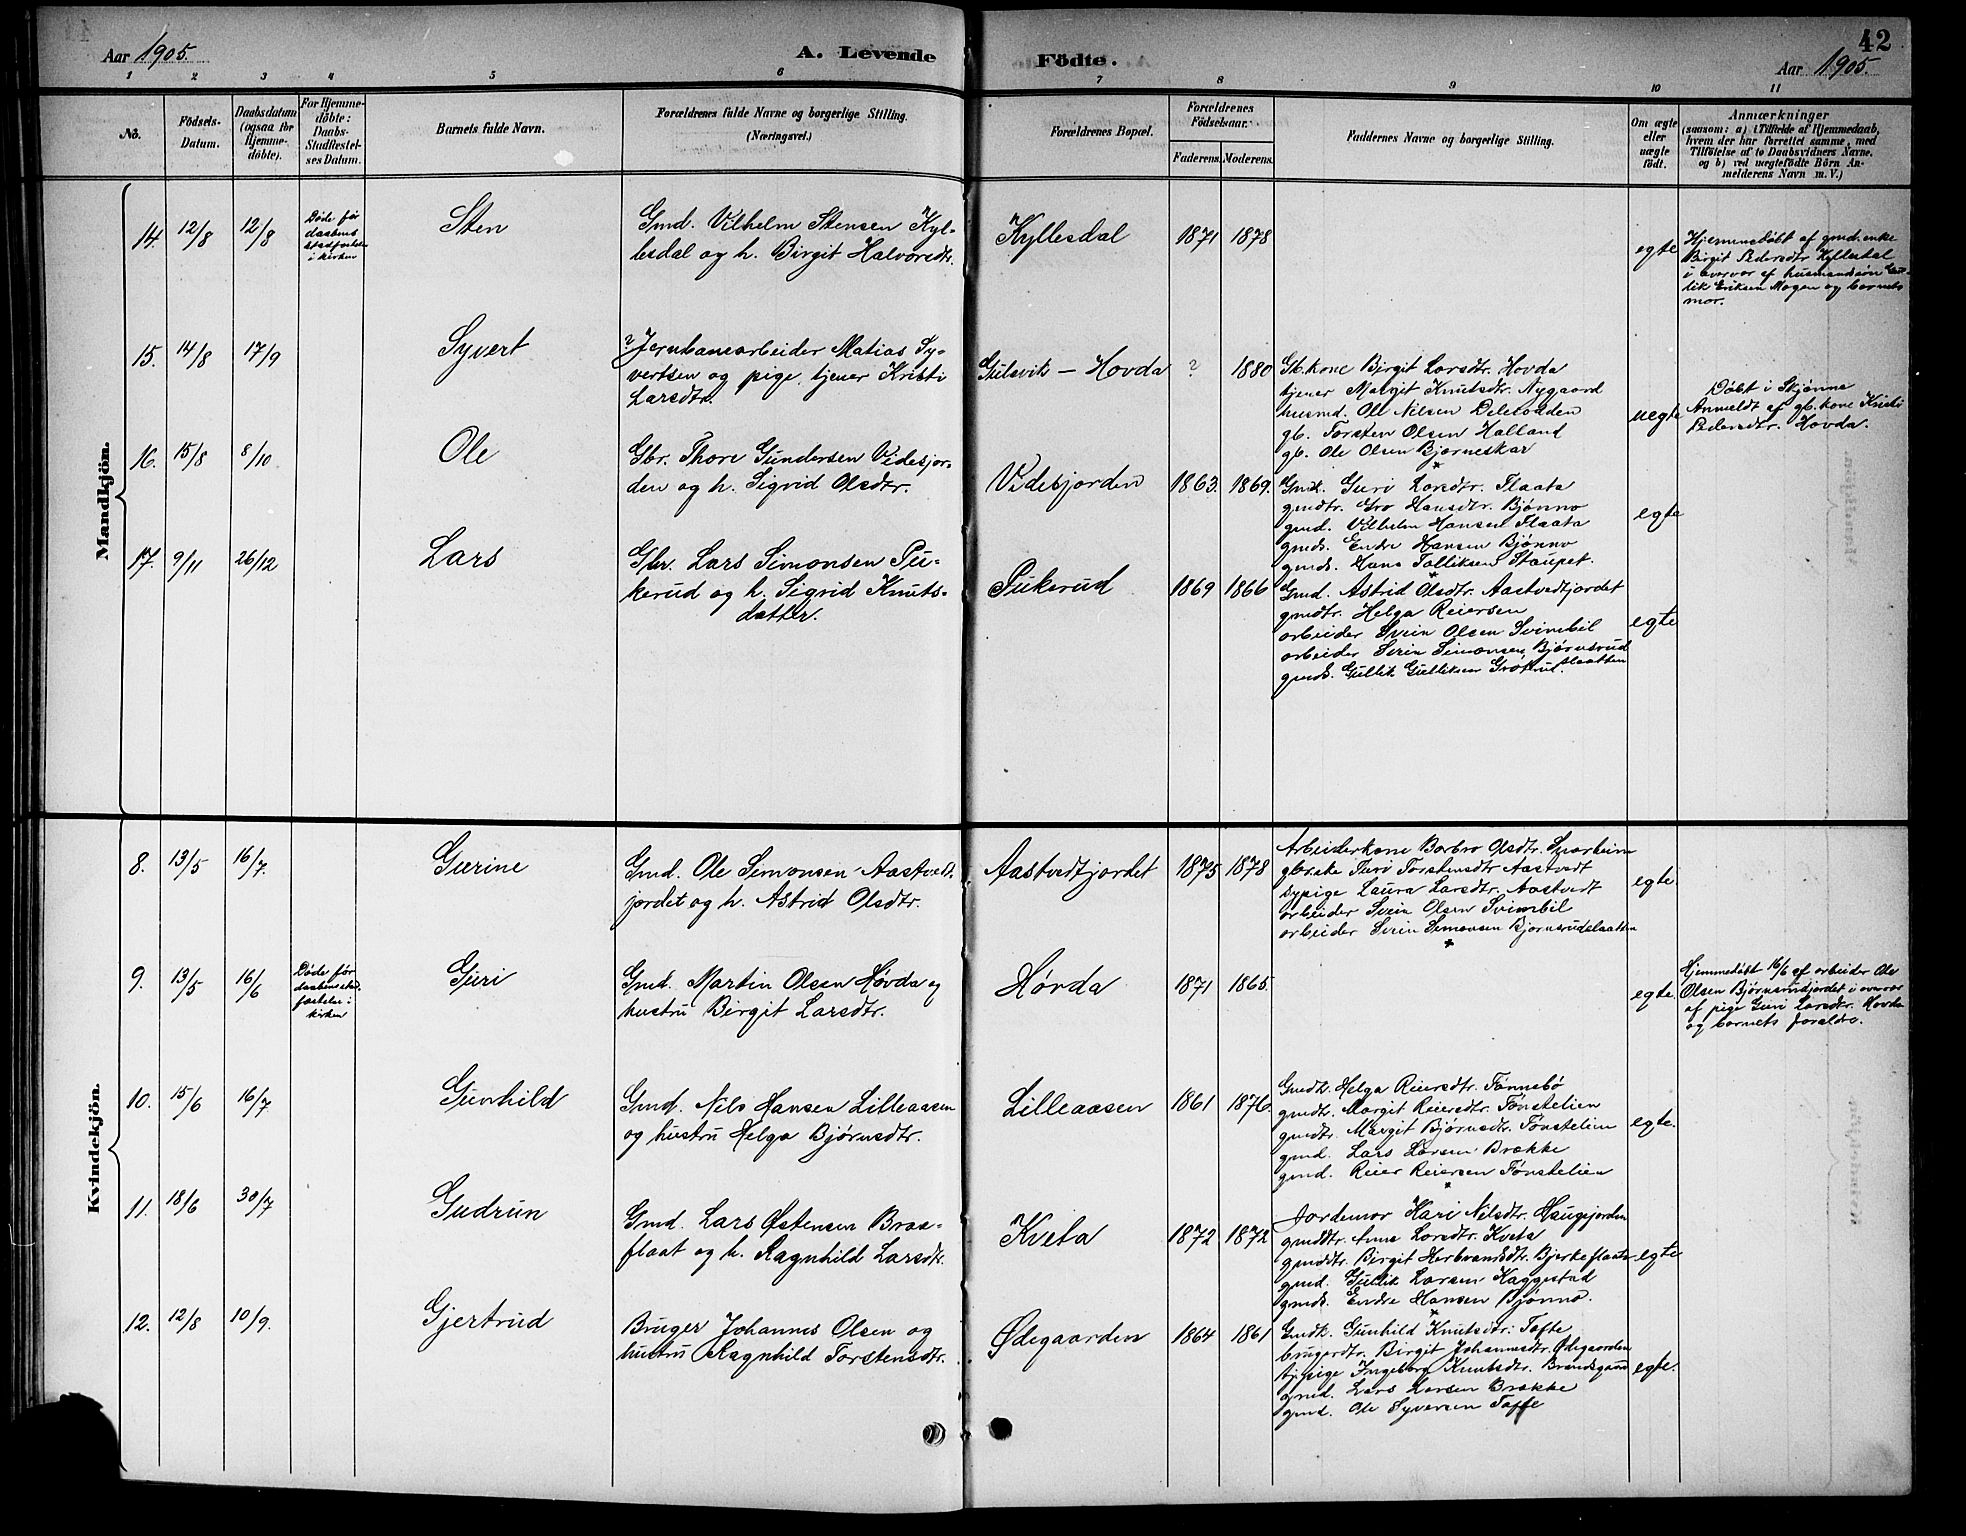 Aar 1905.
A. Levende
Födte.
42
Aar 1905.
1 2 3 4 5 6 7 8 9 10 11
No.
Födsels-
Datum.
Daabsdatum
(ogsaa for
Hjemme-
döbte).
For Hjemme-
döbte:
Daabs-
Stadfæstel-
ses Datum.
Barnets fulde Navn.
Forældrenes fulde Navne og borgerlige Stilling.
(Næringsvei.)
Forældrenes Bopæl.
Forældrenes
Födselsaar.
Faderens. Moderens.
Faddernes Navne og borgerlige Stilling.
Om ægte
eller
uægte
födt.
Anmærkninger
(saasom: a) i Tilfælde af Hjemmedaab,
hvem der har forrettet samme, med
Tilföielse af to Daabsvidners Navne,
og b) ved uegtefödte Börn An-
melderens Navn m. V.)
Mandkjön.
14. 12/8 12/8
Døde før
daabens
stadfæstelse
i kirken
Sten
Gmd. Vilhelm Stensen Kyl-
lesdal og h. Birgit Halvorsdtr.
Kyllesdal 1871 1878
egte
Hjemmedøbt af gmd.enke
Birgit Pedersdtr Kyllesdal
i overvær af husmandssøn Gul-
lik Eriksen Mogen og barnets
mor.
15. 14/8 17/9
Syvert
? Jernbanearbeider Matias Sy-
vertsen og pige, tjener Kristi
Larsdtr.
Gulsvik – Hovda ? 1880
Gb.kone Birgit Larsdtr. Hovda
tjener Margit Knutsdtr. Nygaard
husmd. Ole Nilsen
gb. Torsten Olsen Halland
gb. Ole Olsen Bjørneskar
uegte
Døbt i Skjønne
Anmeldt af gb.kone Kristi
Pedersdtr. Hovda.
16. 15/8 8/10
Ole
Gbr. Thore Gundersen Videsjor-
den og h. Sigrid Olsdtr.
Videsjorden 1863. 1869.
Gmdk. Guri Larsdtr. Flaata
gmdtr. Gro Hansdtr. Bjønno
gmd. Vilhelm Hansen Flaata
gmds. Endre Hansen Bjønno
gmds. Hans Tolliksen Staupet.
egte
17. 9/11 26/12
Lars
Gbr. Lars Simonsen Pu-
kerud og h. Sigrid Knuts-
datter.
Pukerud 1869 1866
Gmd. Astrid Olsdtr. Aastvedtjordet
gmdtr. Helga Reiersen
arbeider Svein Olsen Svimbil
arbeider Svein Simonsen Bjørnsrudslaatten
gmds. Gullik Gulliksen Grøtrud.
egte
Kvindekjön.
8. 13/5 16/7.
Gurine
Gmd. Ole Simonsen Aastvedt-
jordet og h. Astrid Olsdtr.
Aastvedtjordet 1875 1878
Arbeiderkone Barbro Olsdtr.
gbrenke Turi Torstensdtr Aastvedt
sypige Laura Larsdtr. Aastvedt
arbeider Svein Olsen Svimbil
arbeider Svein Simonsen Bjørnsrudslaatten
egte.
9. 13/5 16/6
Døde før
daabens stad-
fæstelse i
kirken
Guri
Gmd. Martin Olsen Hovda og
hustru Birgit Larsdtr.
Hovda 1871 1865.
egte.
Hjemmedøbt 16/6 af arbeider Ole
Olsen Bjørnsrudjordet i overvær
af pige Guri Larsdtr. Hovda
og barnets forældre.
10. 15/6 16/7
Gunhild
Gmd. Nils Hansen Lilleaasen
og hustru Helga Bjørnsdtr.
Lilleaasen 1861 1876.
Gmdk. Helga Reiersdtr. Tønnebø
gmdtr. Margit Reiersdtr. Tønstelien
gmdtr. Margit Bjørnsdtr. Tønstelien
gmd. Lars Larsen Brække
gmd. Reier Reiersen Tønstelien
egte.
11. 18/6 30/7
Gudrun
Gmd. Lars Østensen Braa-
flaat og h. Ragnhild Larsdtr.
Kveta 1872 1872
Jordemor Kari Nilsdtr. Haugejorden
gmddtr. Anne Larsdtr. Kveta
gmddtr. Birgit Herbrandsdtr. Bjerkeflaata
gmd. Gullik Larsen Kaggestad
gmds. Endre Hansen Bjønno.
egte
12. 12/8 10/9.
Gjertrud
Bruger Johannes Olsen og
hustru Ragnhild Torstensdtr.
Ødegaarden 1864 1861
Gmdk. Gunhild Knutsdtr. Tofte
brugerdtr. Birgit Johannesdtr. Ødegaarden
tj.pige Ingeborg Knutsdtr. Brandsgaard
gmd. Lars Larsen Brække
gmd. Ole Syversen Tofte
egte.